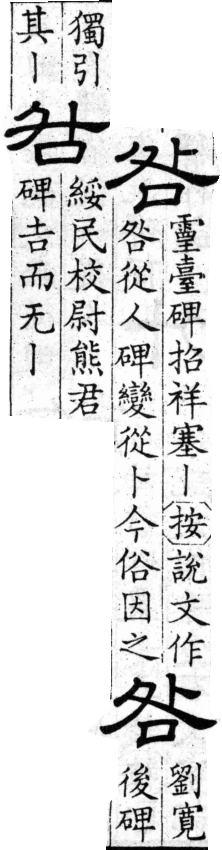 咎
靈臺碑招祥塞丨按說文作
咎從人碑變從卜今俗因之
咎
劉寬
後碑
獨引
其丨
咎
綏民校尉熊君
碑吉而无丨